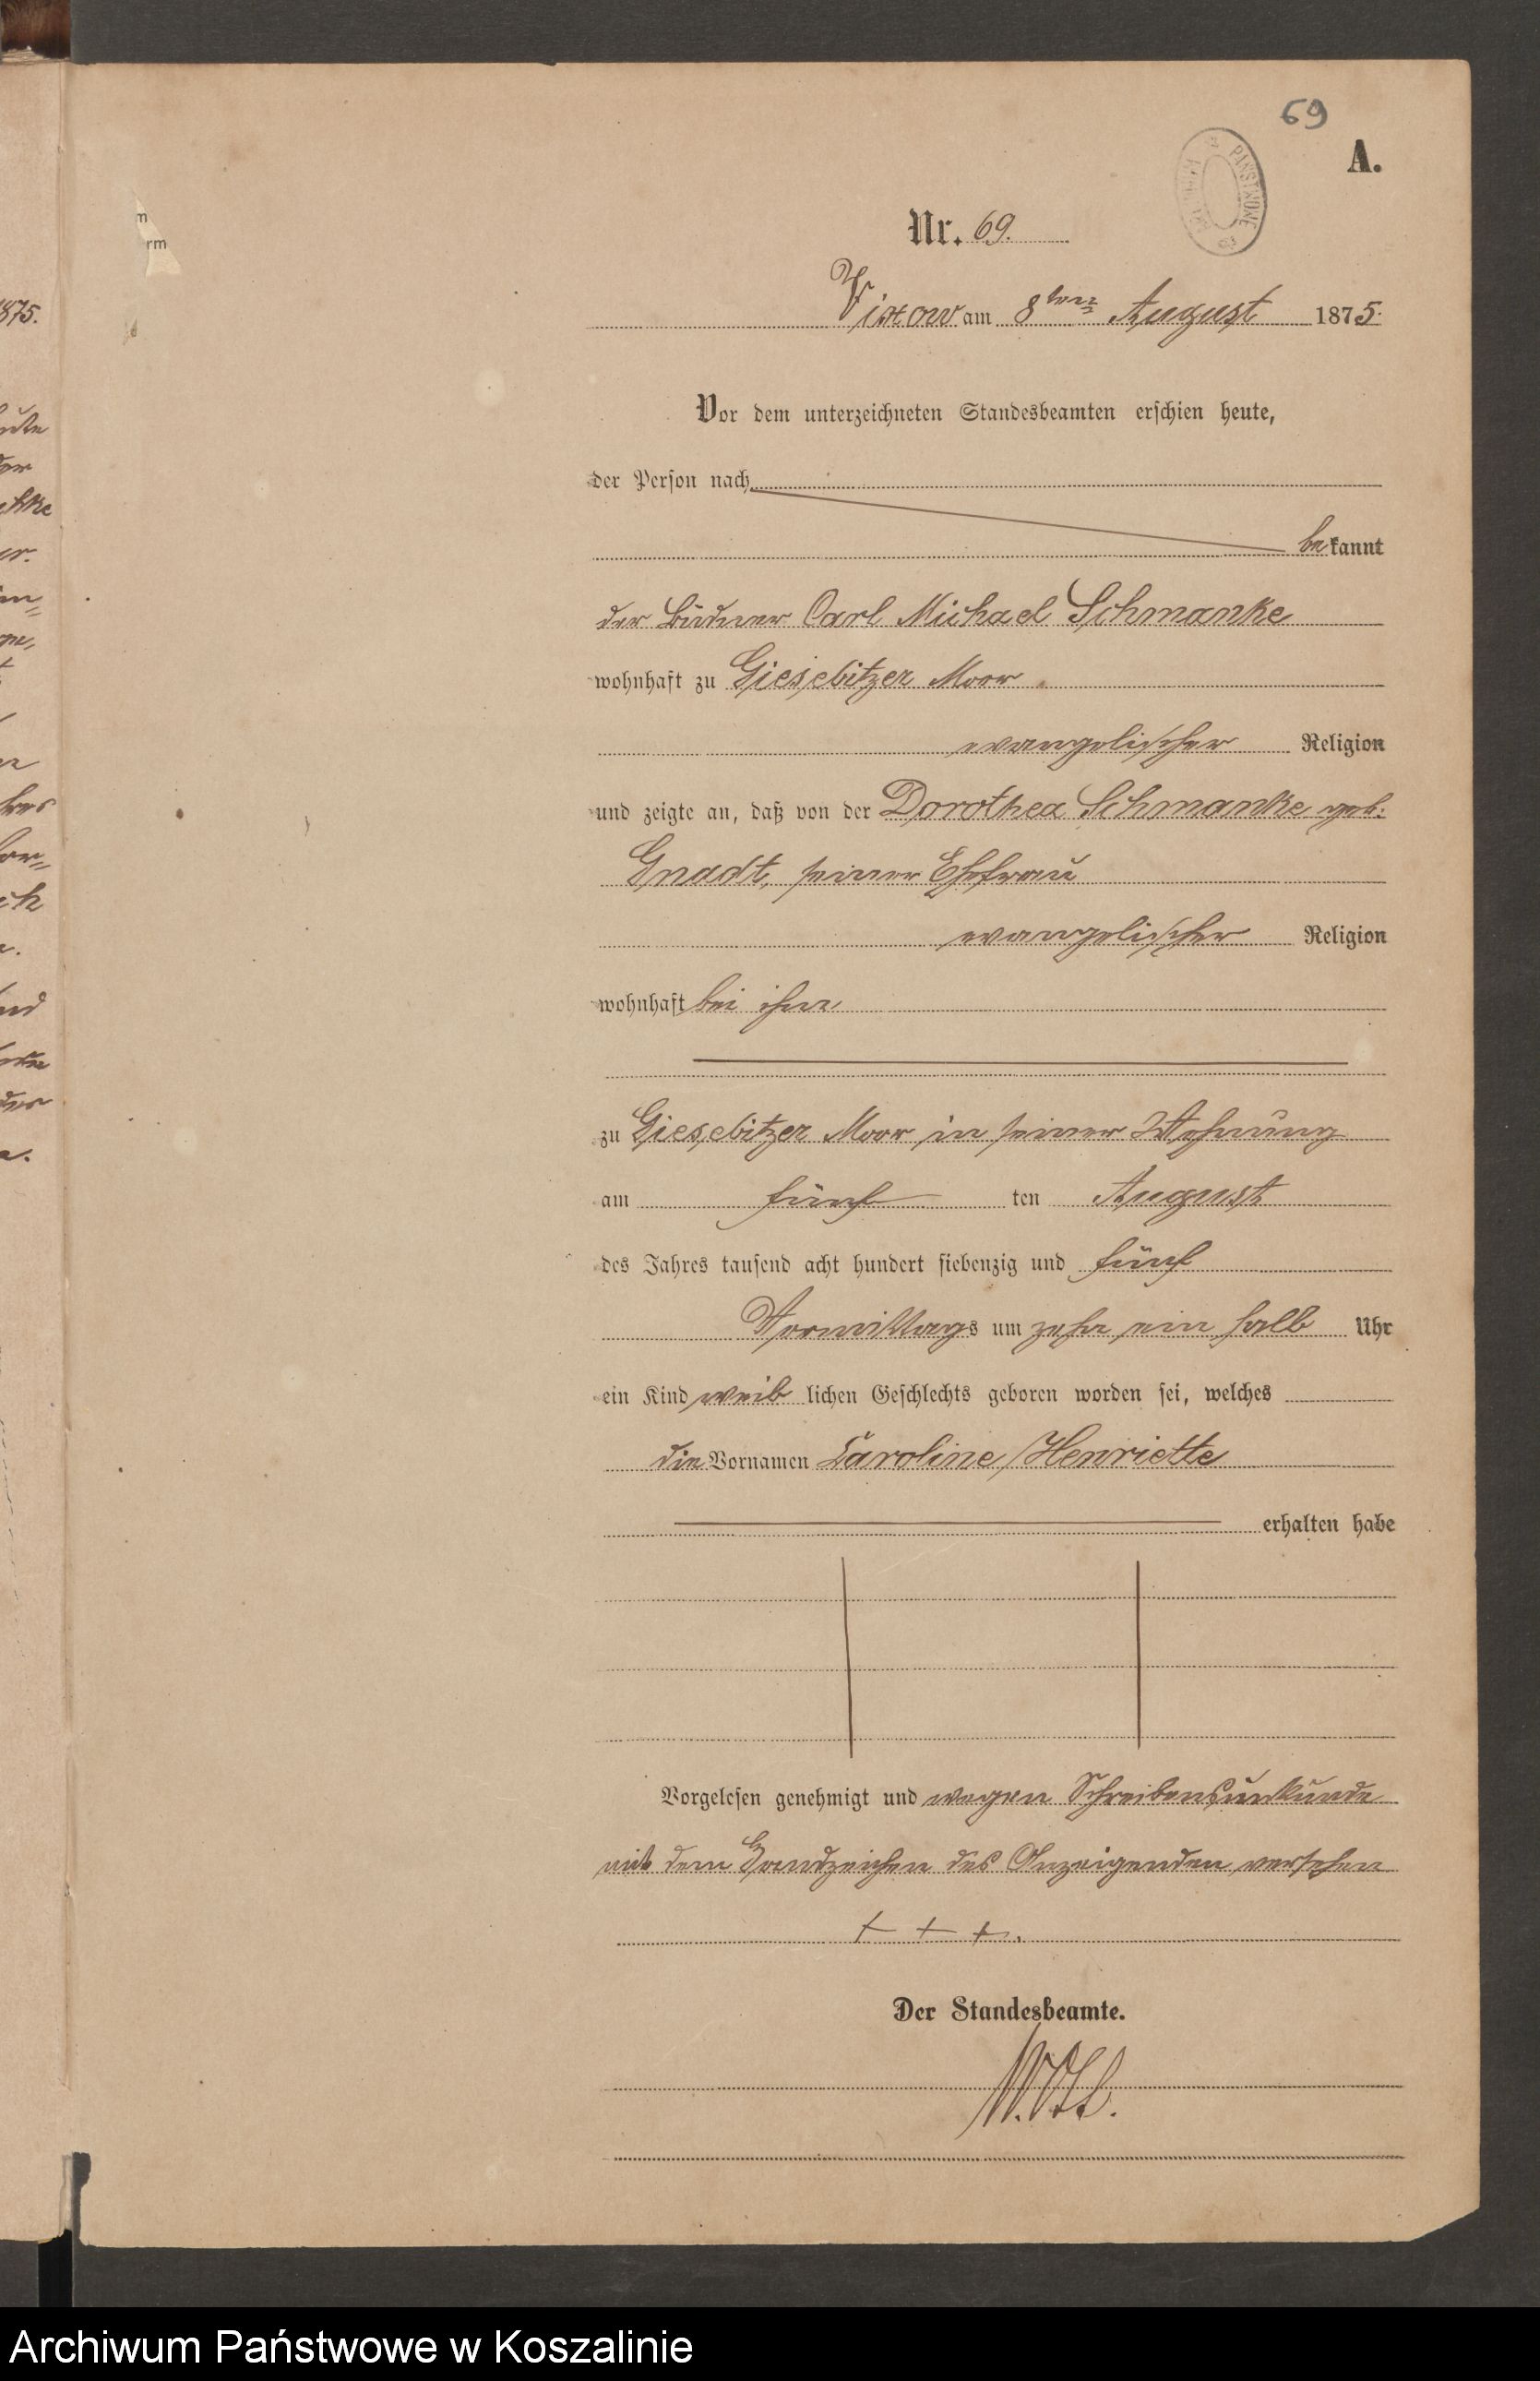 69
A.
Nr. 69.
Vixow am 8ten August 1875.
Vor dem unterzeichneten Standesbeamten erschien heute,
der Person nach
bekannt
der Büdner Carl Michael Schmanke
wohnhaft zu Giesebitzer Moor
evangelischer Religion
und zeigte an, daß von der Dorothea Schmanke geb:
Gnadt, seiner Ehefrau
evangelischer Religion
wohnhaft bei ihm
zu Giesebitzer Moor in seiner Wohnung
am fünf ten August
des Jahres tausend acht hundert siebenzig und fünf
Vormittags um zehn ein halb Uhr
ein Kind weiblichen Geschlechts geboren worden sei, welches
die Vornamen Caroline Henriette
erhalten habe
Vorgelesen genehmigt und wegen Schreibensunkunde
mit dem Handzeichen des Anzeigenden versehen
+ + +.
Der Standesbeamte.
1875.
Archiwum Państwowe w Koszalinie